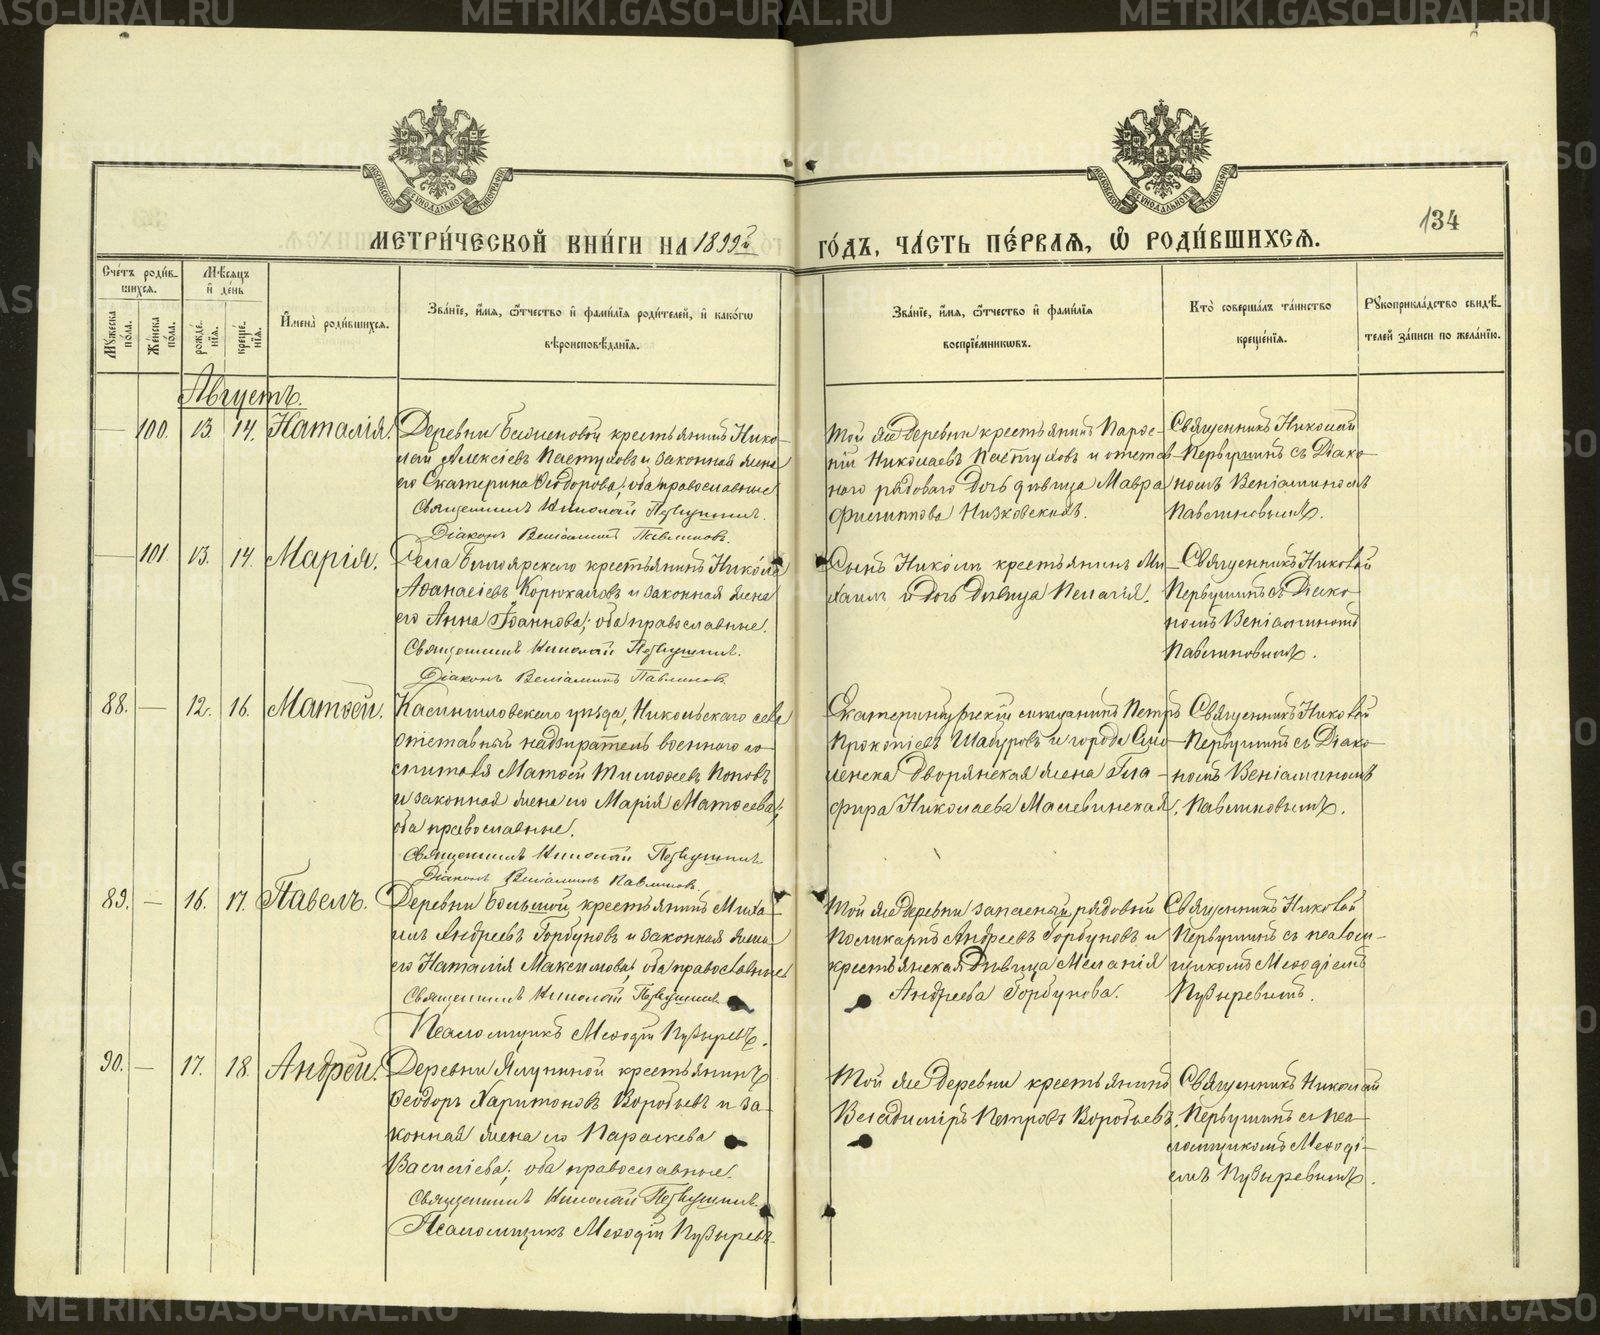 METRIKI.GASO-URAL.RU
МЕТРИ́ЧЕСКОЙ КНИ́ГИ НА 1899й
ГО́ДЪ, ЧА́СТЬ ПЕ́РВАЯ, Ѡ РОДИ́ВШИХСЯ.
134
Сче́тъ роди́вшихся.
Му́жеска по́ла.
Же́нска по́ла.
Мѣ́сяцъ и де́нь
рожде́нїя.
креще́нїя.
И҆мена̀ роди́вшихся.
Зва́нїе, и҆́мя, ѻ҆́тчество и҆ фами́лїя роди́телей, и҆ како́гѡ
вѣроисповѣ́данїя.
Зва́нїе, и҆́мя, ѻ҆́тчество и҆ фами́лїя
воспрїе́мникѡвъ.
Кто̀ соверша́лъ та́инство
креще́нїя.
Рꙋкоприкла́дство свидѣ́-
телей за́писи по жела́нїю.
Августъ.
— 100. 13. 14. Наталія.
Деревни крестьянинъ Нико-
лай Алексіевъ Пастуховъ и законная жена
его Екатерина Ѳеодорова; оба православные
Священникъ Николай Первушинъ.
Діаконъ Веніаминъ Павлиновъ.
Той же деревни крестьянинъ
Николаевъ Пастуховъ и отстав-
ного рядоваго дочь девица Мавра
Филиппова Низковскихъ.
Священникъ Николай
Первушинъ съ Діако-
номъ Веніаминомъ
Павлиновымъ.
— 101. 13. 14. Марія.
Села Боярскаго крестьянинъ Никола
Аѳанасіевъ Корюкаловъ и законная жена
его Анна Іоаннова; оба православные.
Священникъ Николай Первушинъ.
Діаконъ Веніаминъ Павлиновъ.
Сынъ Николы крестьянинъ Ми-
хаилъ и дочь девица Пелагія.
Священникъ Николай
Первушинъ съ Діако-
номъ Веніаминомъ
Павлиновымъ.
88. — 12. 16. Матѳей.
уѣзда, Никольскаго села
отставный надзиратель военного го-
спиталя Матѳей Тимоѳеевъ Поповъ
и законная жена его Марія Матѳеева;
оба православные.
Священникъ Николай Первушинъ
Діаконъ Веніаминъ Павлиновъ.
Екатеринбургскій мѣщанинъ Петръ
Прокопіевъ Шабуровъ и города Смо-
ленска Дворянская жена Гла-
фира Николаева Малевинская.
Священникъ Николай
Первушинъ съ Діако-
номъ Веніаминомъ
Павлиновымъ.
89. — 16. 17. Павелъ.
Деревни Большой крестьянинъ Миха-
илъ Андреевъ Горбуновъ и законная жена
его Наталія Максимова; оба православные
Священникъ Николай Первушинъ
Псаломщикъ Меѳодій Пузыревъ.
Той же деревни запасный рядовый
Поликарпъ Андреевъ Горбуновъ и
крестьянская девица Меланія
Андреева Горбунова.
Священникъ Николай
Первушинъ съ псалом-
щикомъ Меѳодіемъ
Пузыревымъ.
90. — 17. 18. Андрей.
Деревни Ялуниной крестьянинъ
Ѳеодоръ Харитоновъ Воробьевъ и за-
конная жена его Параскева
Василіева; оба православные.
Священникъ Николай Первушинъ.
Псаломщикъ Меѳодій Пузыревъ.
Той же деревни крестьянинъ
Владиміръ Петровъ Воробьевъ.
Священникъ Николай
Первушинъ съ пса-
ломщикомъ Меѳоді-
емъ Пузыревымъ.